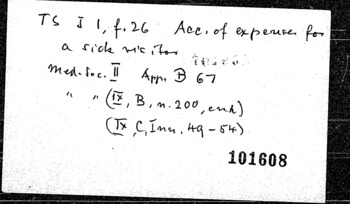 TS J 1, f. 26 Acc. of expenses for
a sick visitor
Med. Soc. II App. B 67
" " (IX, B, n. 200, end)
(IX, C, Inn. 49-54)
101608